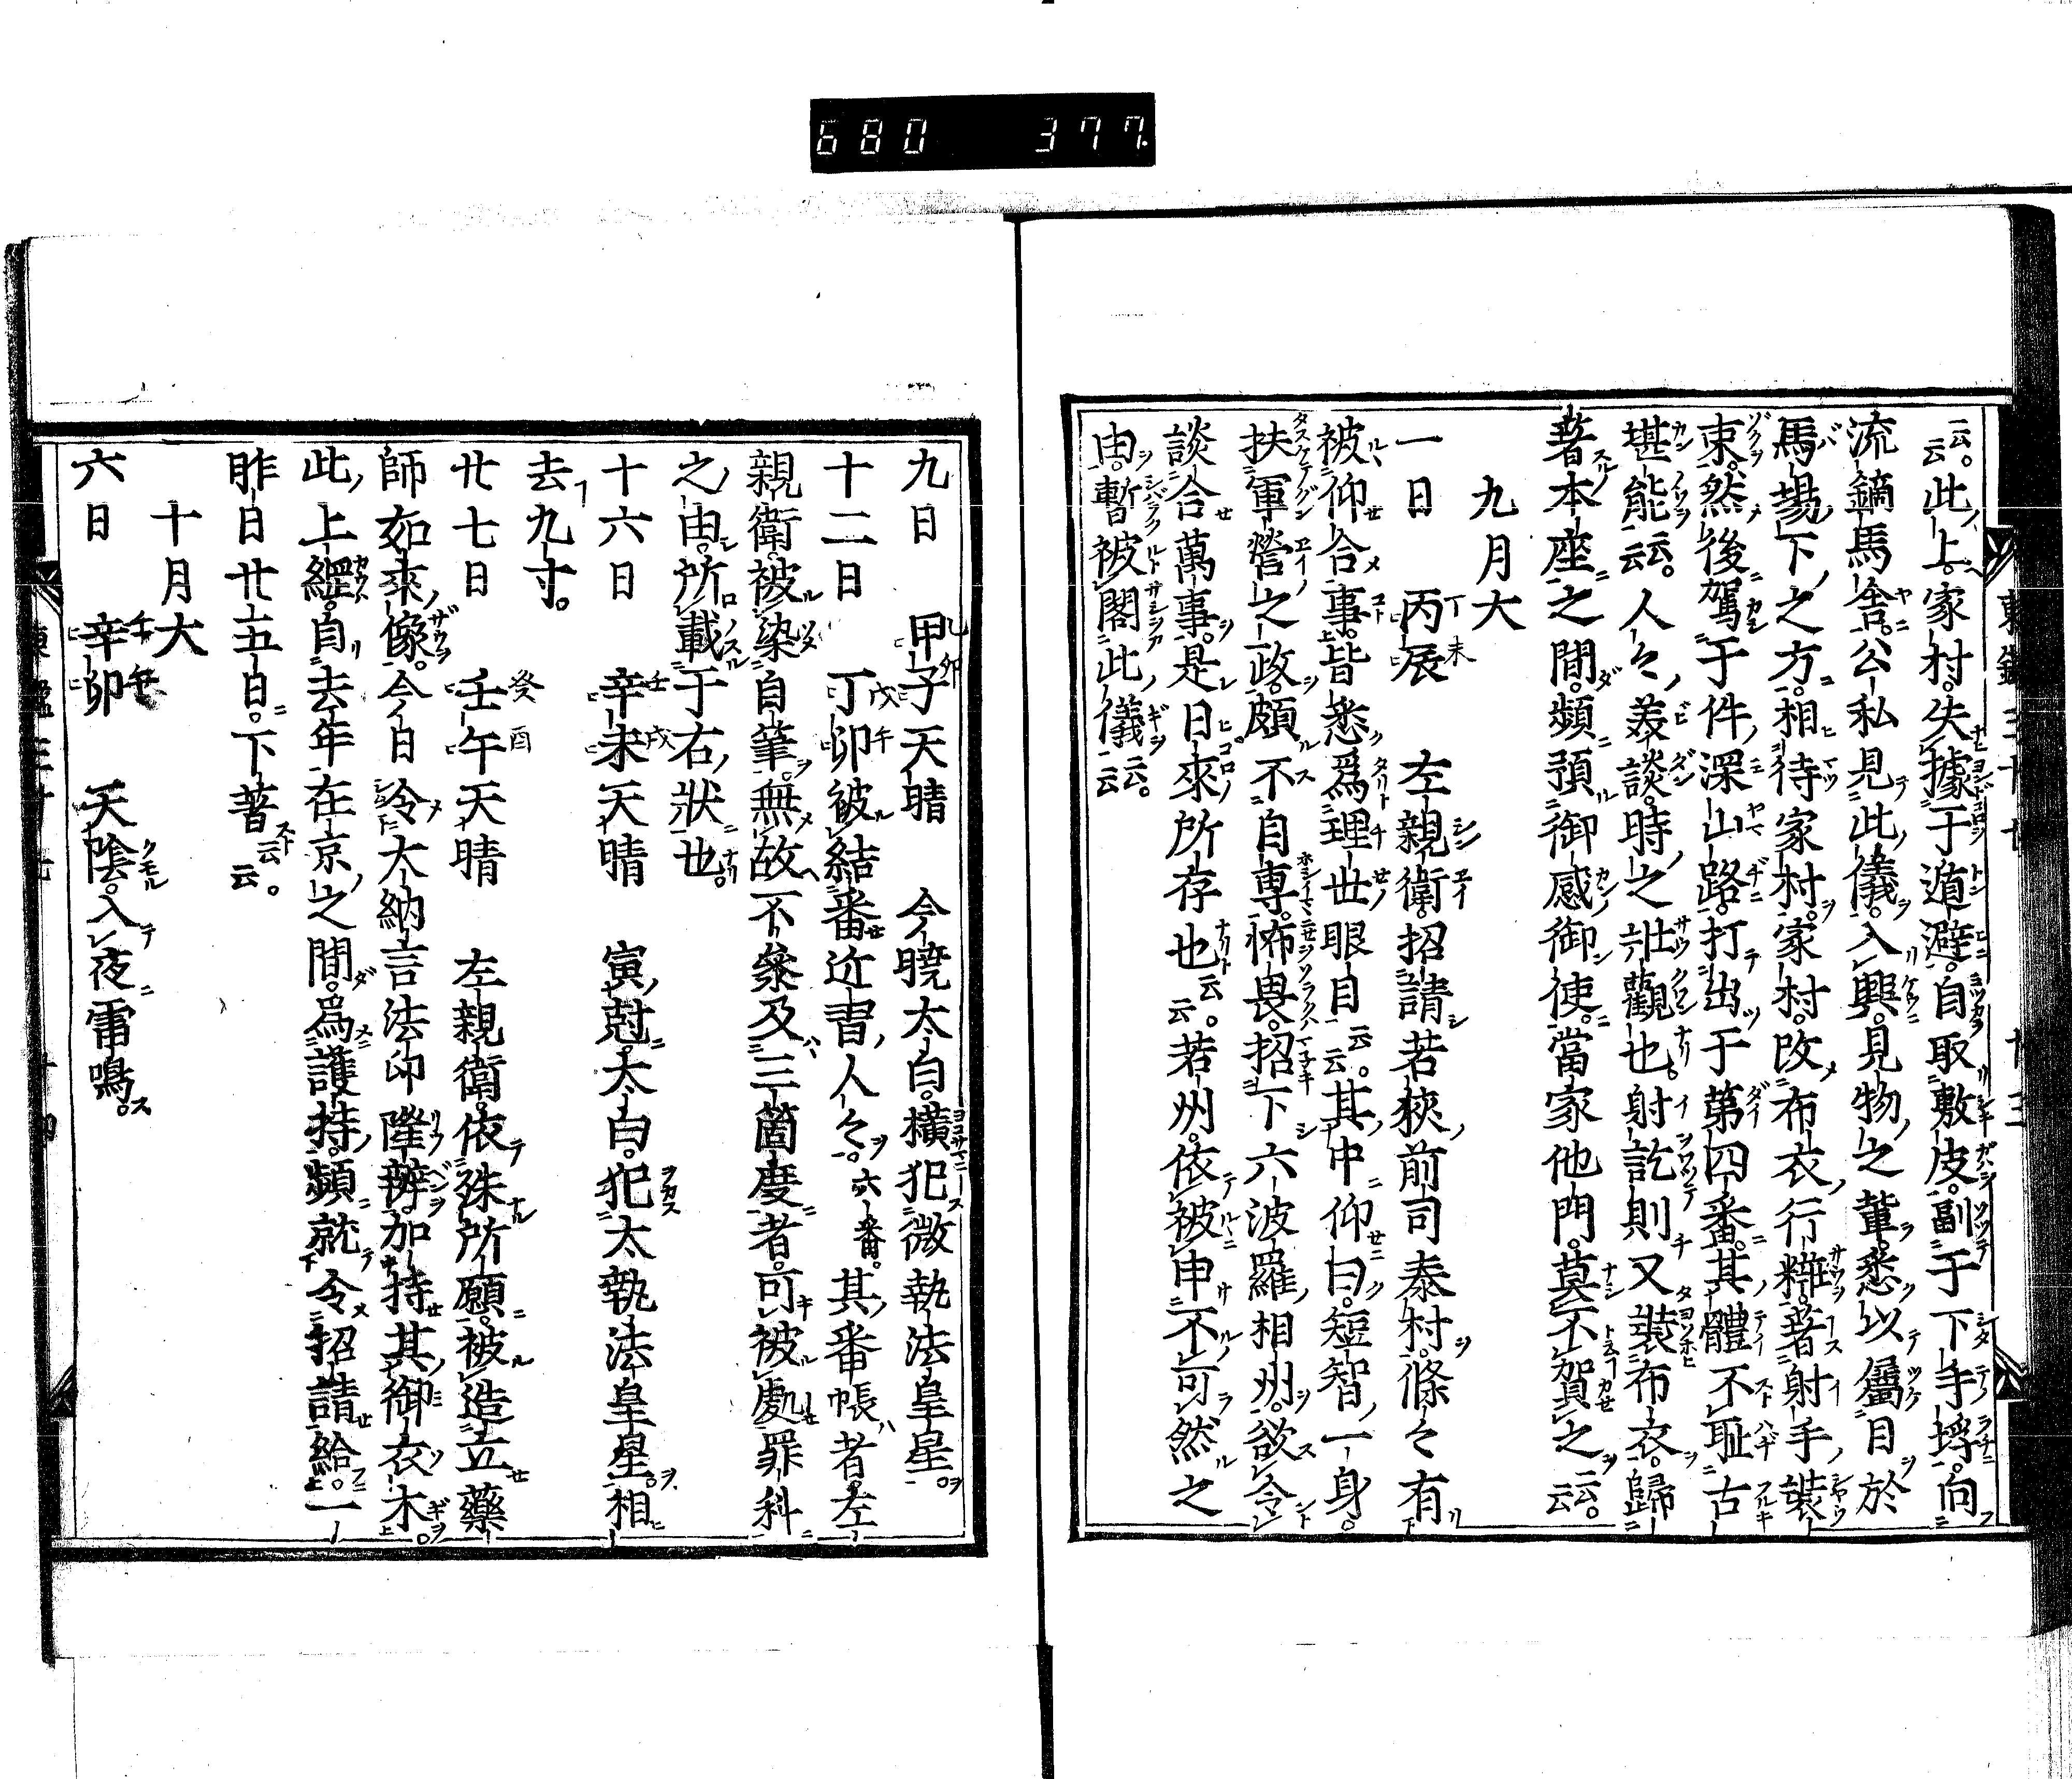 680 377.
云云。此上。家村。失據于遁避。自取敷皮。副于下手埒。向
流鏑馬舎。公私見此儀。入興。見物之輩。悉以屬目於
馬場下之方。相待家村。家村。改布衣行粧。著射手裝
束。然後駕于件深山路。打出于第四番。其體不耻古
堪能云云。人々美談。時之壯觀也。射訖則又裝布衣。歸
著本座之間。頻預御感御使。當家他門。莫不賀之云云。
九月大
一日 丙辰 左親衛。招請若狹前司泰村。條々有
被仰合事。皆悉爲理世眼目云云。其中仰曰。短智一身。
扶軍營之政。頗不自專。怖畏。招下六波羅相州。欲令
談合萬事。是日來所存也云云。若州。依被申不可然之
由。暫被閣此儀云云。
九日 甲子天晴 今曉太白。横犯微執法皇星。
十二日 丁卯被結番近習人々。六番。其番帳者。左
親衛。被染自筆。無故不參及三箇度者。可被處罪科
之由。所載于右狀也。
十六日 辛未天晴 寅尅太白。犯太執法皇星。相
去九寸。
廿七日 壬午天晴 左親衛。依殊所願。被造立藥
師如來像。今日令大納言法印隆辨。加持其御衣木。
此上綱。自去年在京之間。爲護持。頻就令招請給。一
昨日廿五日。下著云云。
十月大
六日 辛卯 天陰。入夜雷鳴。